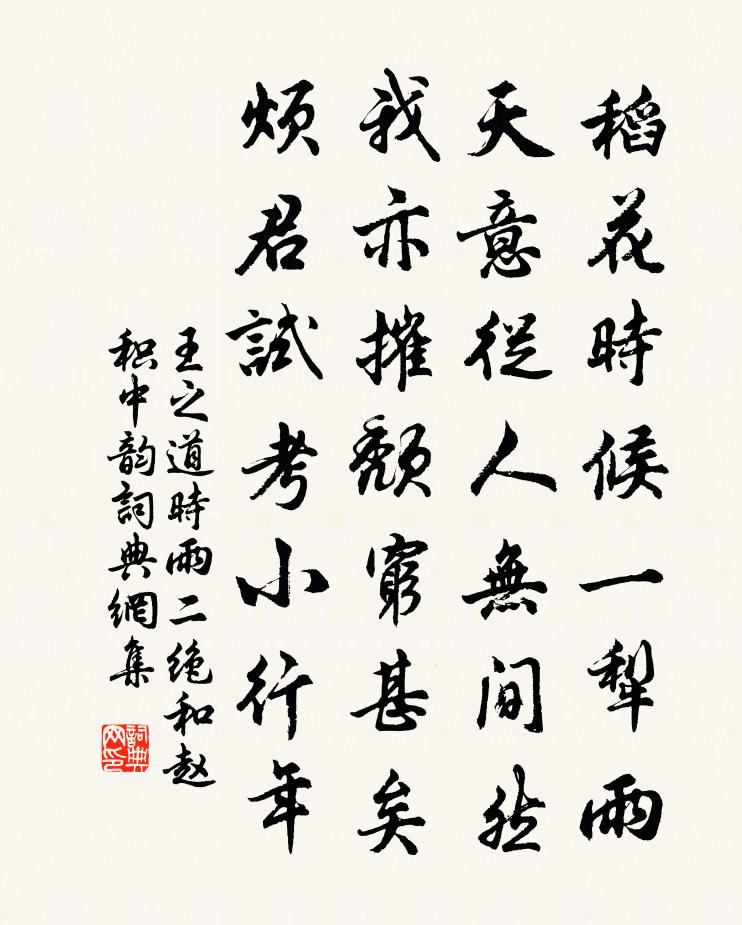 稻花時候一犁雨
天意從人無間然
我亦摧頹窮甚矣
煩君試考小行年
王之道時雨二绝和赵
积中韵詞典網集
詞典网印